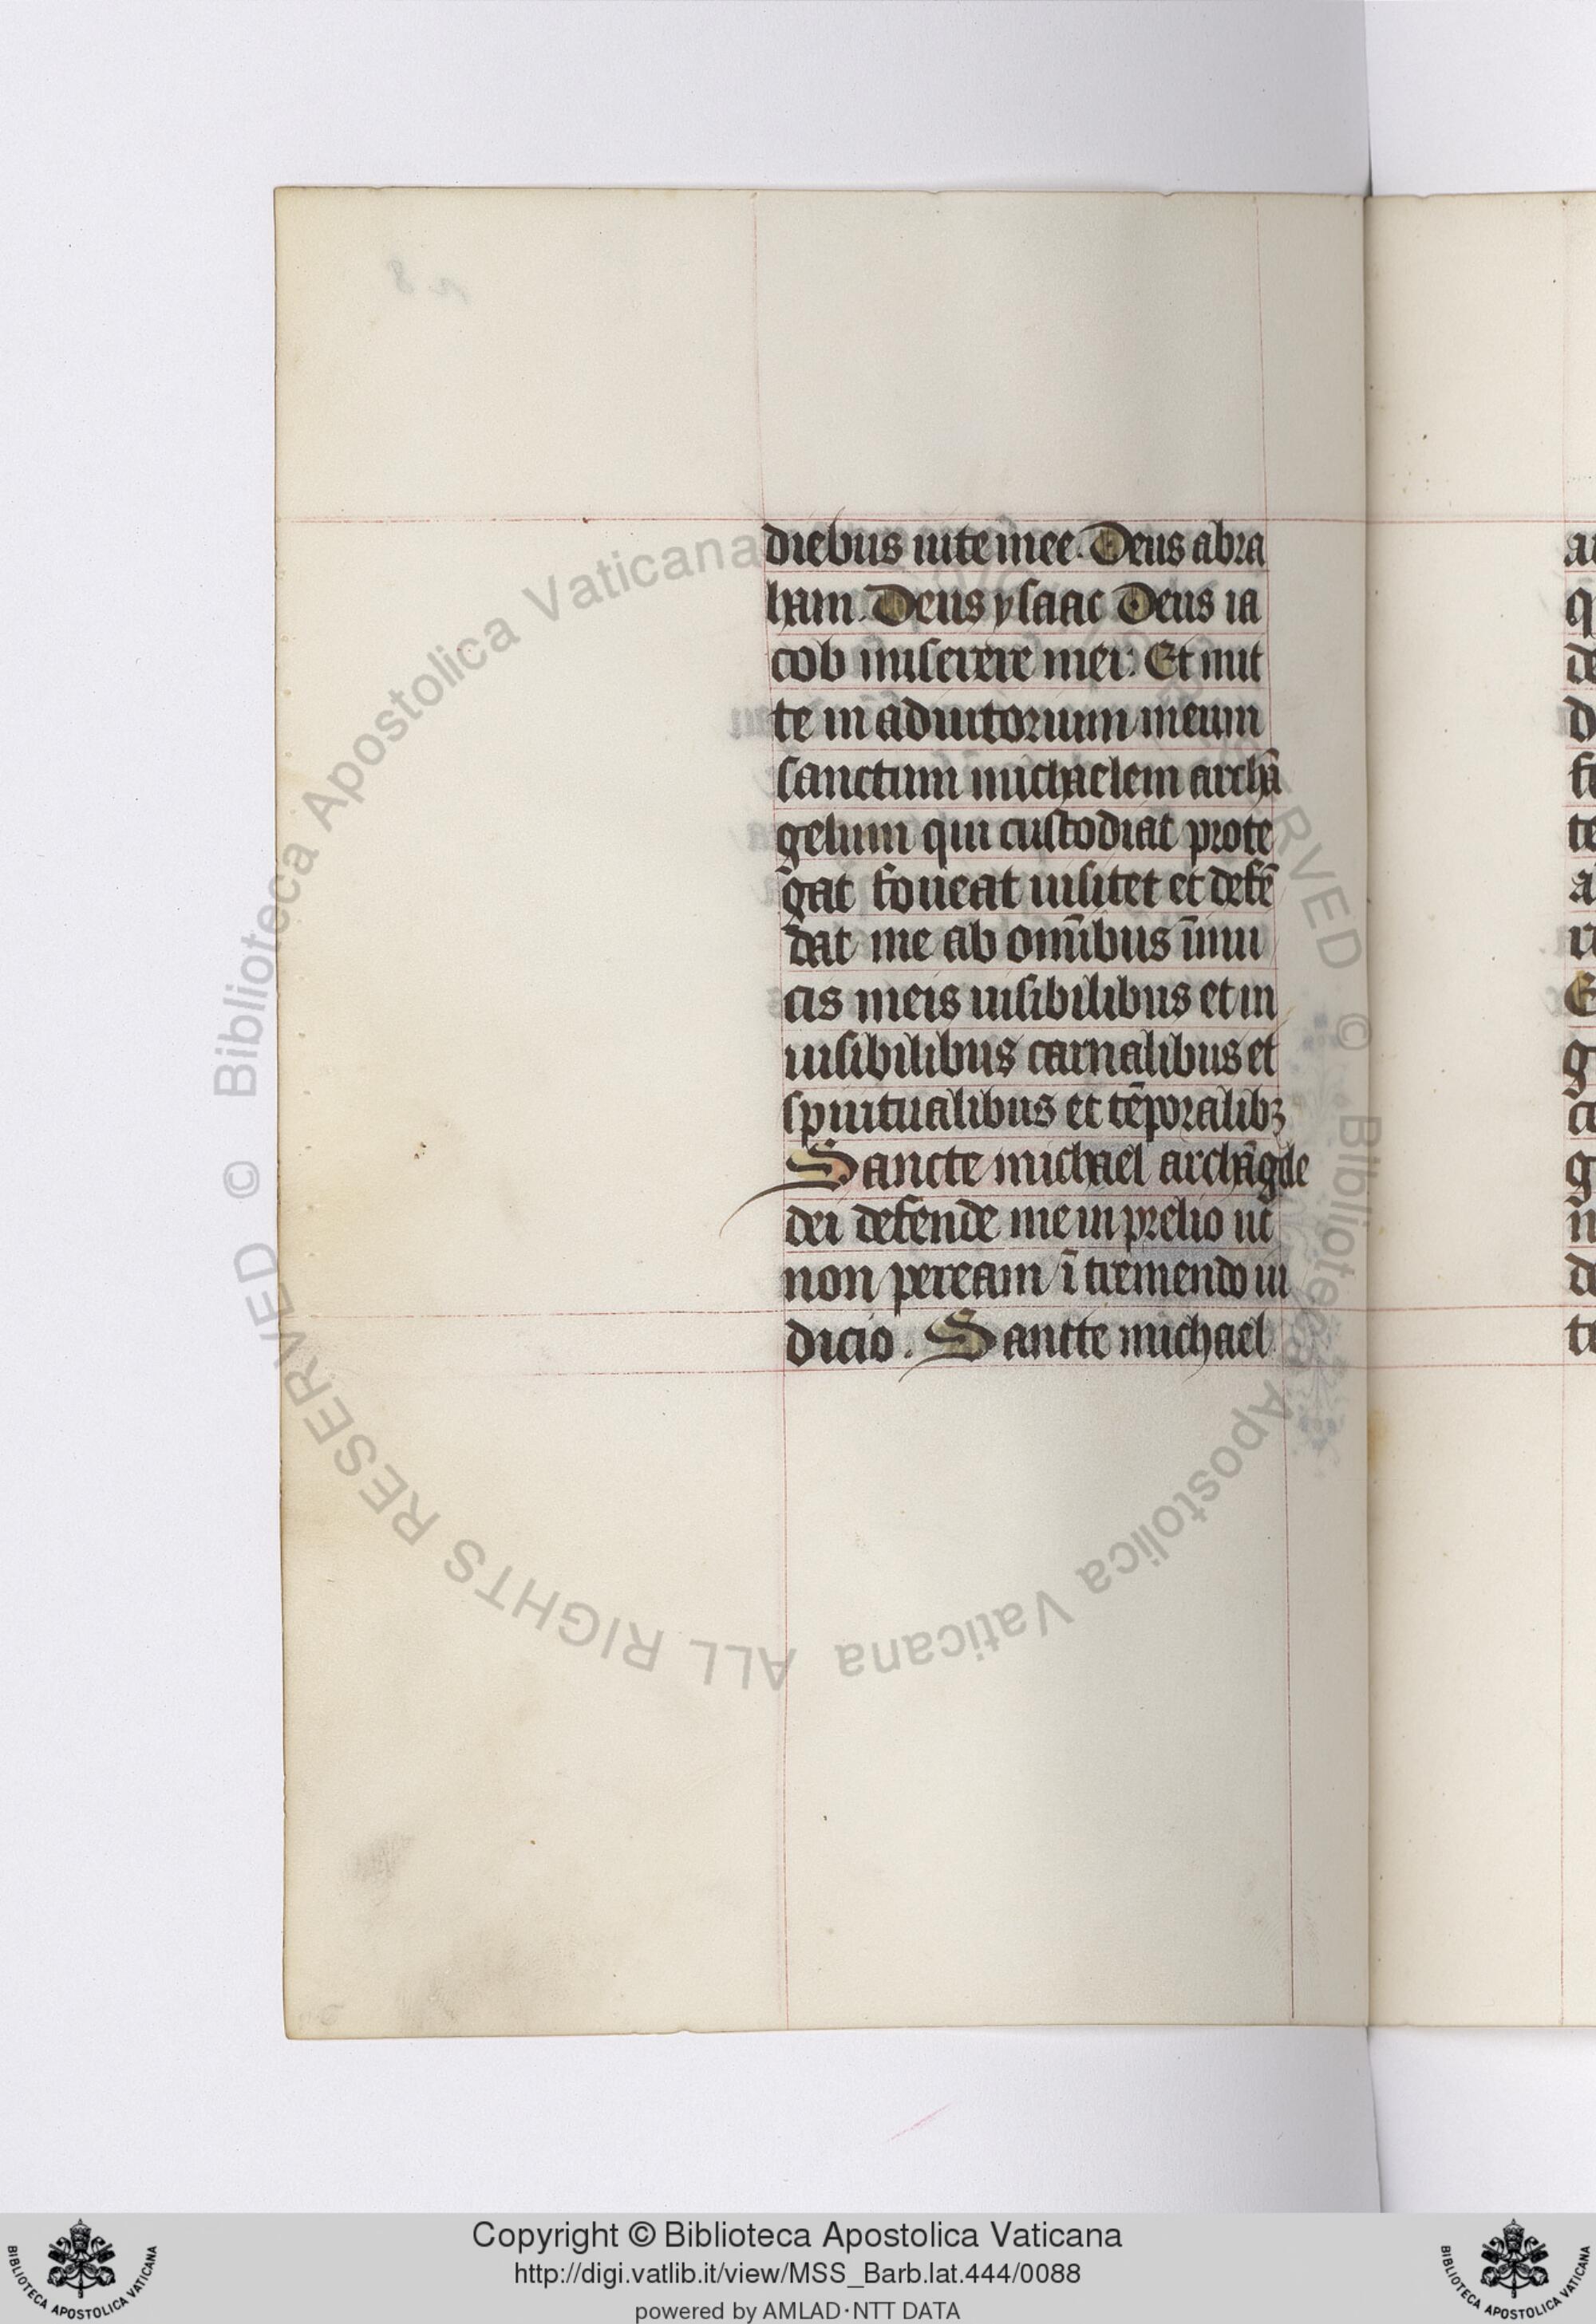 diebus uite mee. Deus abra
ham. Deus ysaac Deus ia
cob miserere mei: Et mit
te in adiutorium meum
sanctum michaelem archā
gelum qui custodiat prote
gat foueat uisitet et defē
dat me ab omībus īimi
cis meis uisibilibus et in
uisibilibus carnalibus et
spiritualibus et tēporalibꝫ
Sancte michael archāgele
dei defende me in prelio ut
non peream ī tremendo iu
dicio. Sancte michael
© Biblioteca Apostolica Vaticana ALL RIGHTS RESERVED © Biblioteca Apostolica Vaticana
Copyright © Biblioteca Apostolica Vaticana
http://digi.vatlib.it/view/MSS_Barb.lat.444/0088
powered by AMLAD·NTT DATA
BIBLIOTECA APOSTOLICA VATICANA
BIBLIOTECA APOSTOLICA VATICANA